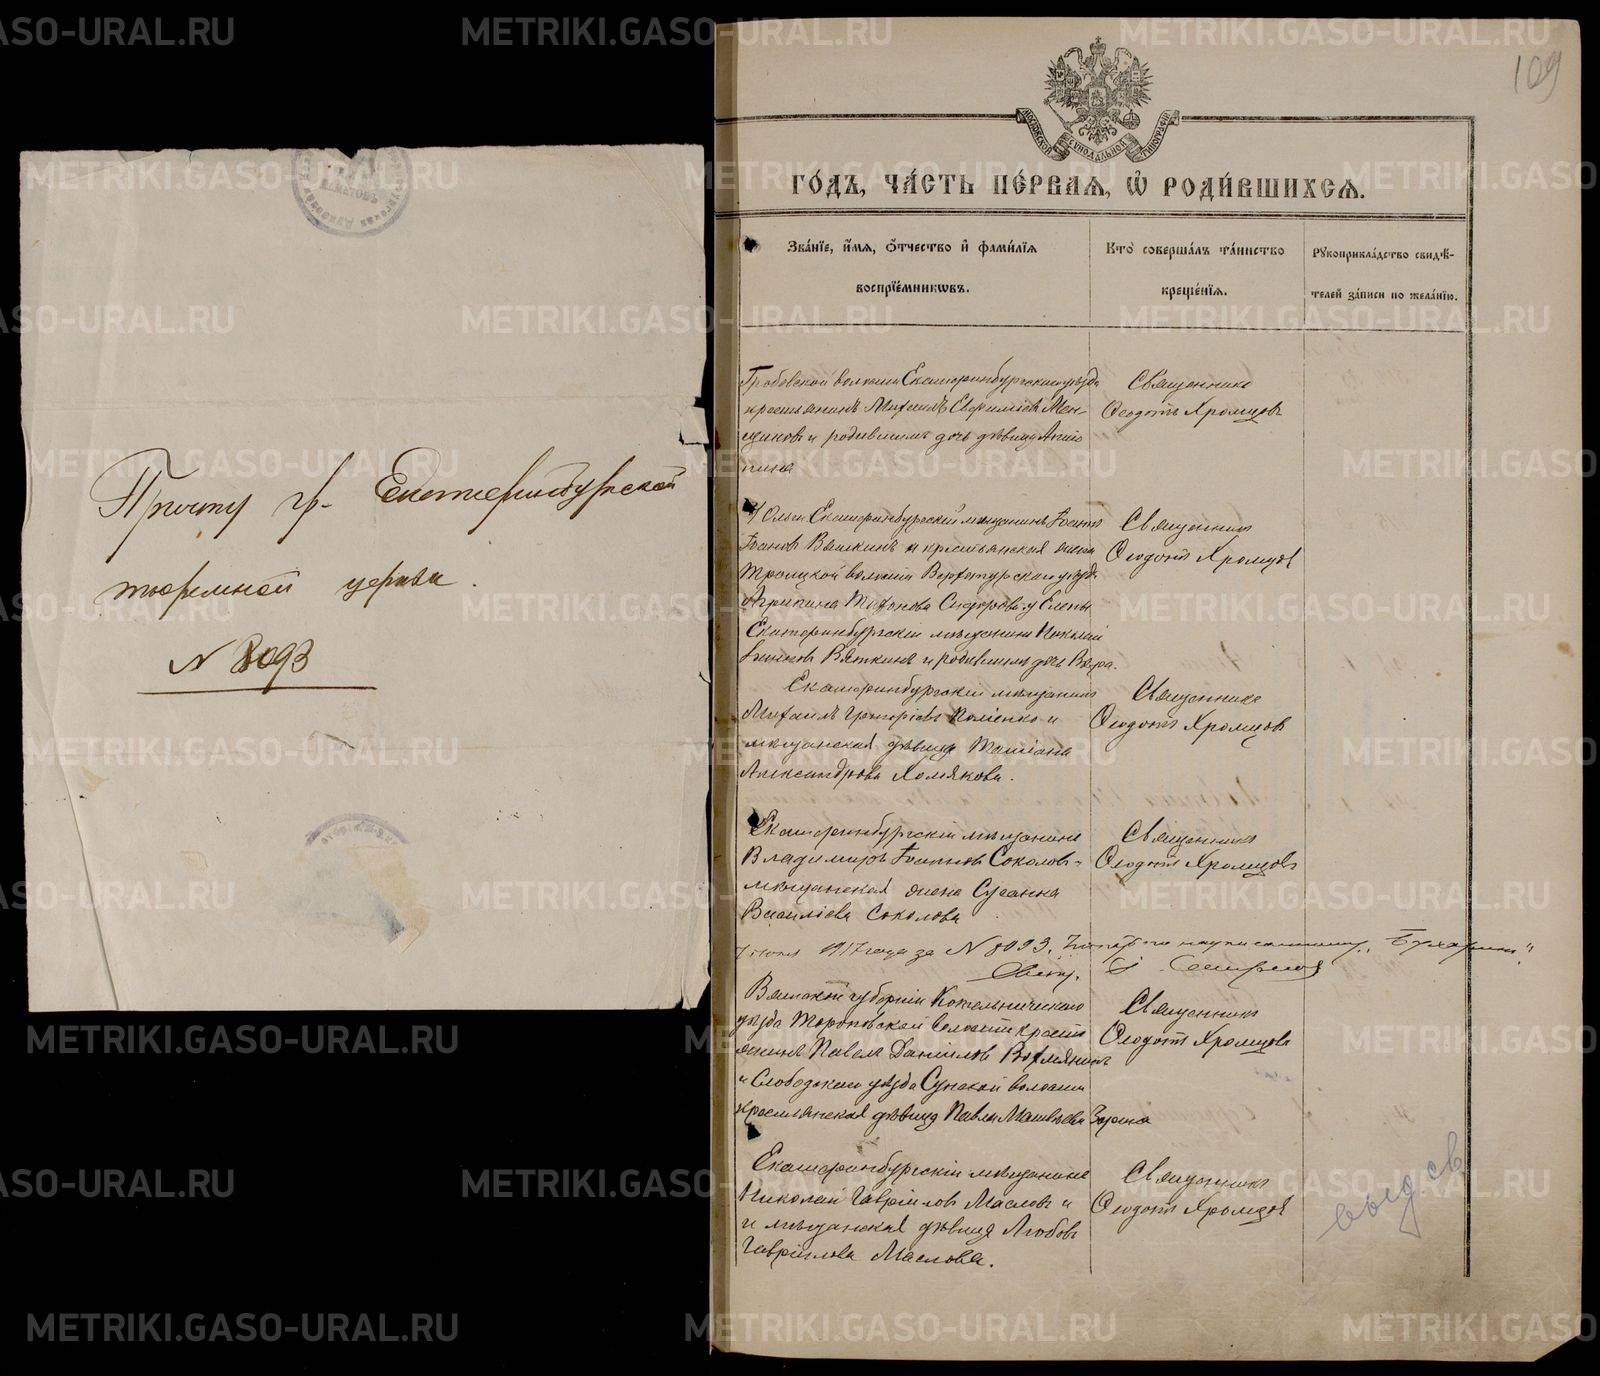 Причту гр. Екатеринбургской
тюремной церкви.
N 8093
109
МОСКОВСКОЙ СѴНОДАЛЬНОЙ ТИПОГРАФІИ
ГО́ДЪ, ЧА́СТЬ ПЕ́РВАѦ, Ѽ РОДИ́ВШИХСѦ.
Зва́нїе, и́мѧ, ѻ҆́тчество и҆ фами́лїѧ
воспрїе́мникѡвъ.
Кто̀ соверша́лъ та́инство
креще́нїѧ.
Рꙋкоприкла́дство свидѣ́-
телей за́писи по жела́нїю.
Гробовской волости Екатеринбургскаго уѣзда
крестьянинъ Михаилъ Евфиміевъ Мен-
щиковъ и родившимъ дочь дѣвица Агрип
пина
Священникъ
Ѳеодотъ Хромцовъ
У Ольги Екатеринбургскій мѣщанинъ Іоаннъ
Іоановъ Вяткинъ и крестьянская жена
Троицкой волости Верхотурскаго уѣзда
Агрипина Тихонова Сидорова, у Елены
Екатеринбургскій мѣщанинъ Николай
Іоанновъ Вяткинъ и родившимъ дочь Вѣра.
Священникъ
Ѳеодотъ Хромцовъ
Екатеринбургскій мѣщанинъ
Михаилъ Григоріевъ Поліенко и
мѣщанская дѣвица Татіана
Александрова Холмякова.
Священникъ
Ѳеодотъ Хромцовъ
Екатеринбургскій мѣщанинъ
Владимиръ Іоанновъ Соколовъ
мѣщанская жена Сусанна
Василіева Соколова
Священникъ
Ѳеодотъ Хромцовъ
7 іюня 1917 года за N 8093. написанному „Бухаринъ“
Вятской губерніи Котельническаго
уѣзда Тороповской волости кресть
янинъ Павелъ Даніиловъ Вохмянинъ
и Слободскаго уѣзда Сунской волости
крестьянская дѣвица Павла Матвѣева Зорина
Священникъ
Ѳеодотъ Хромцовъ
Екатеринбургскій мѣщанинъ
Николай Гавріиловъ Масловъ и
и мѣщанская дѣвица Любовь
Гавріилова Маслова.
Священникъ
Ѳеодотъ Хромцовъ
выд. св
METRIKI.GASO-URAL.RU